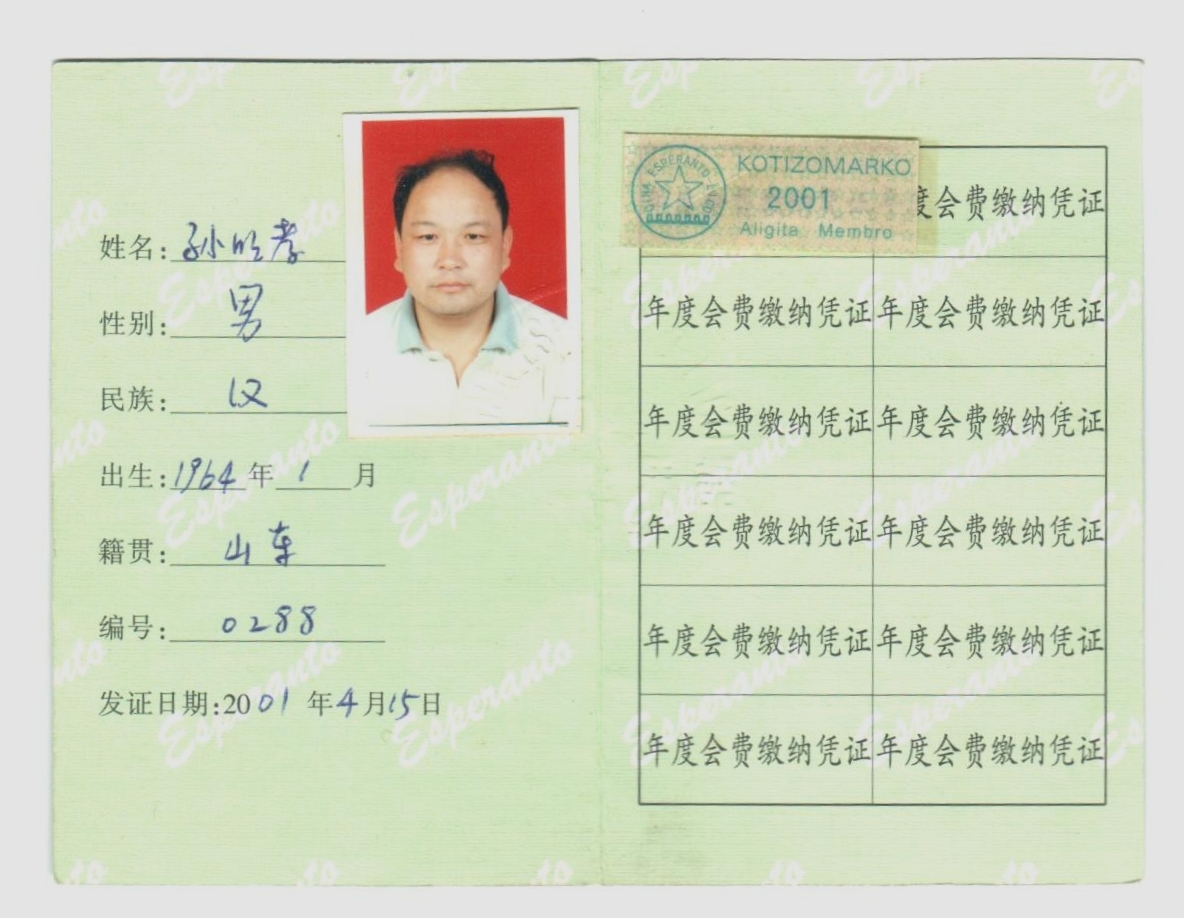 姓名: 孙明孝
性别: 男
民族: 汉
出生: 1964 年 1 月
籍贯: 山东
编号: 0288
发证日期: 2001 年 4 月 15 日
ĈINA ESPERANTO-LIGO
KOTIZOMARKO
2001
Aligita Membro
度会费缴纳凭证
年度会费缴纳凭证 年度会费缴纳凭证
年度会费缴纳凭证 年度会费缴纳凭证
年度会费缴纳凭证 年度会费缴纳凭证
年度会费缴纳凭证 年度会费缴纳凭证
年度会费缴纳凭证 年度会费缴纳凭证
Esperanto